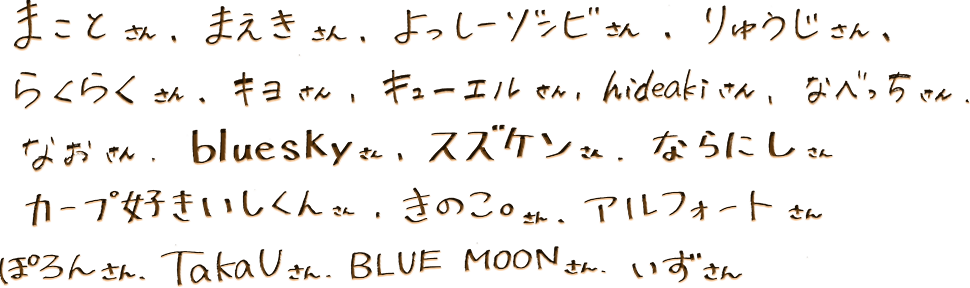 まことさん、まえきさん、よっしーゾンビさん、りゅうじさん、
らくらくさん、キヨさん、キューエルさん、hideakiさん、なべっちさん、
なおさん、blueskyさん、スズケンさん、ならにしさん
カープ好きいしくんさん、きのこ。さん、アルフォートさん
ぽろんさん、TakaUさん、BLUE MOONさん、いずさん